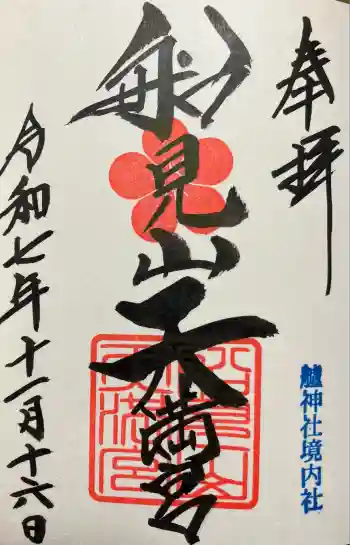 奉拝
船見山天満宮
艫神社境内社
令和七年十一月十六日